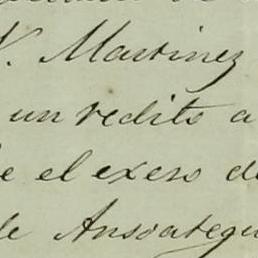 V. Martinez
un redito a
e el exeso de
de Ansoategui